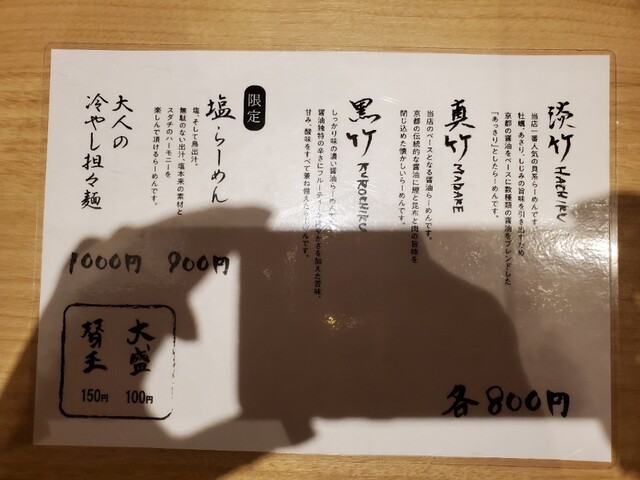 淡竹 HACHIKU
当店一番人気の貝系らーめんです。
牡蠣、あさり、しじみの旨味を引き出すため
京都の醤油をベースに数種類の醤油をブレンドした
「あっさり」としたらーめんです。
真竹 MADAKE
当店のベースとなる醤油らーめんです。
京都の伝統的な醤油に鰹と昆布と肉の旨味を
閉じ込めた懐かしいらーめんです。
黒竹 KUROCHIKU
しっかり味の濃い醤油らーめんです。
醤油独特の辛さにフルーティーな
かさを加えた旨味、
甘み、酸味をすべて兼ね備えたらーめんです。
各800円
限定
塩らーめん
塩、そして鳥出汁。
無駄のない出汁、塩本来の素材と
スダチのハーモニーを
楽しんで頂けるらーめんです。
900円
大人の
冷やし担々麺
1000円
大盛
100円
替玉
150円